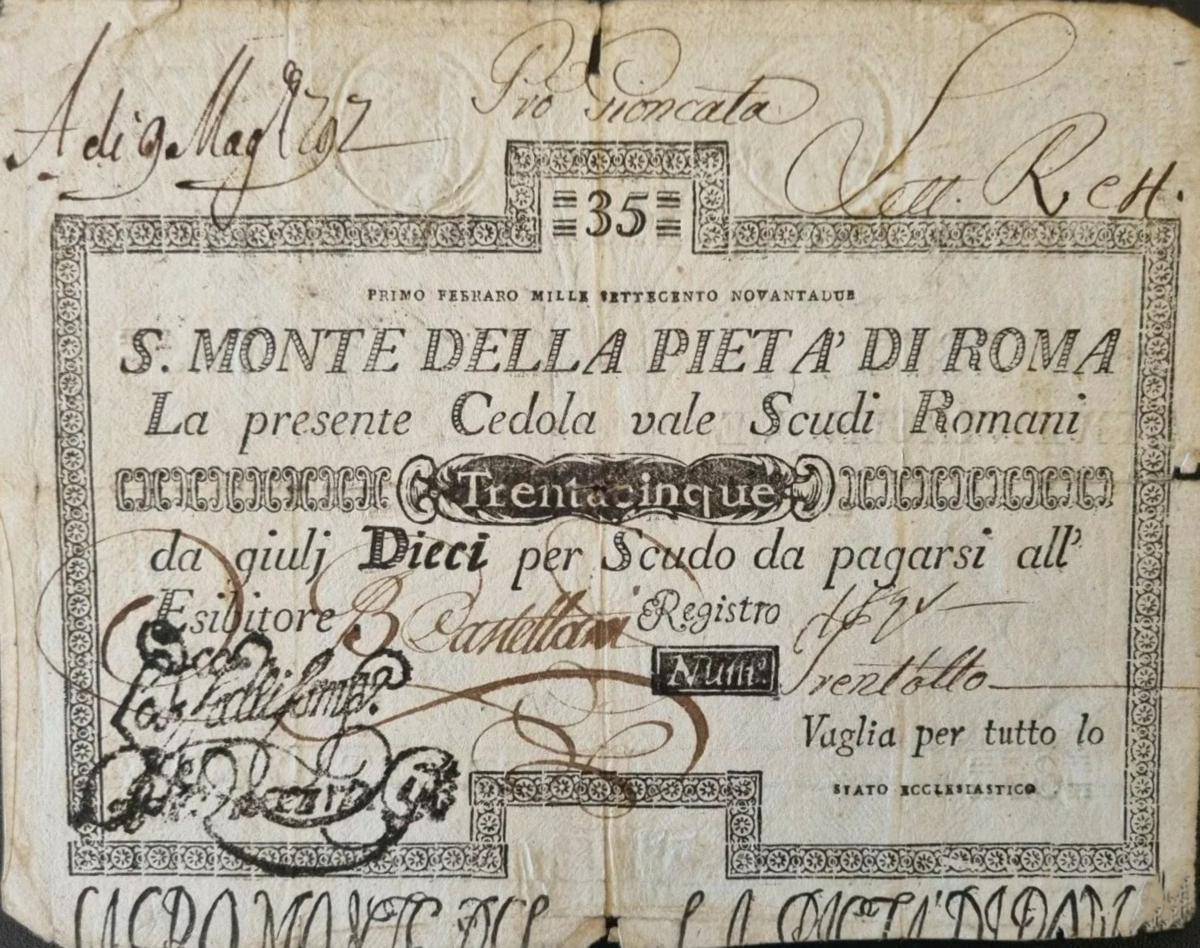 A di 9 Mag
Pro
35
PRIMO FEBRARO MILLE SETTECENTO NOVANTADUE
S. MONTE DELLA PIETA' DI ROMA
La presente Cedola vale Scudi Romani
Trentacinque
da giulj Dieci per Scudo da pagarsi all'
Esibitore B Castellani Registro
Num. Trentotto
Vaglia per tutto lo
STATO ECCLESIASTICO